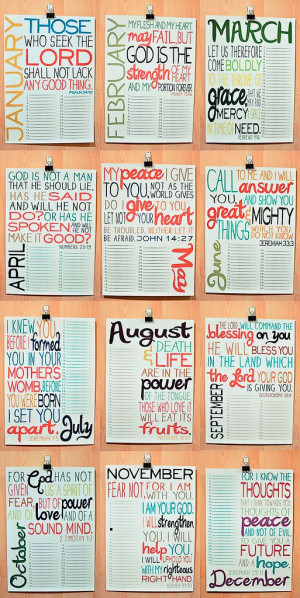 JANUARY
THOSE
WHO SEEK THE
LORD
SHALL NOT LACK
ANY GOOD THING.
PSALM 34:10
FEBRUARY
MY FLESH AND MY HEART
may FAIL, BUT
GOD IS THE
strength OF MY
HEART
AND MY PORTION FOREVER.
PSALM 73:26
MARCH
LET US THEREFORE
COME BOLDLY
TO THE THRONE OF
grace, THAT WE
MAY FIND
MERCY
GRACE
IN TIME OF
NEED.
HEBREWS 4:16
APRIL
GOD IS NOT A MAN
THAT HE SHOULD LIE,
HAS HE SAID
AND WILL HE NOT
DO? OR HAS HE
SPOKEN AND WILL
HE NOT
MAKE IT GOOD?
NUMBERS 23:19
MY peace I GIVE
TO YOU, NOT AS THE
WORLD GIVES
DO I give TO YOU.
LET NOT YOUR heart
BE TROUBLED, NEITHER LET IT
BE AFRAID. JOHN 14:27
May
CALL TO ME AND I WILL
answer
YOU, AND SHOW YOU
great & MIGHTY
THINGS WHICH YOU
DO NOT KNOW.
JEREMIAH 33:3
June
I KNEW YOU
BEFORE I formed
YOU IN YOUR
MOTHERS
WOMB. BEFORE
YOU WERE BORN
I SET YOU
apart.
JEREMIAH 1:5
July
August
DEATH
& LIFE
ARE IN THE
power
OF THE TONGUE,
THOSE WHO LOVE IT
WILL EAT ITS
fruits.
PROVERBS 18:21
SEPTEMBER
THE LORD WILL COMMAND THE
blessing ON YOU
HE WILL BLESS YOU
IN THE LAND WHICH
the Lord YOUR GOD
IS GIVING YOU.
DEUTERONOMY 28:8
October
FOR God HAS NOT
GIVEN US A SPIRIT OF
FEAR, BUT OF power
AND OF love AND OF A
SOUND MIND.
2 TIMOTHY 1:7
NOVEMBER
FEAR NOT FOR I AM
WITH YOU.
I AM YOUR GOD.
I WILL strengthen
YOU, I WILL
help YOU.
I WILL UPHOLD YOU
WITH MY righteous
RIGHT HAND.
ISAIAH 41:10
FOR I KNOW THE
THOUGHTS
THAT I THINK TOWARDS YOU,
THOUGHTS OF
peace AND NOT OF EVIL,
TO GIVE YOU A
FUTURE
AND A hope.
JEREMIAH 29:11
December